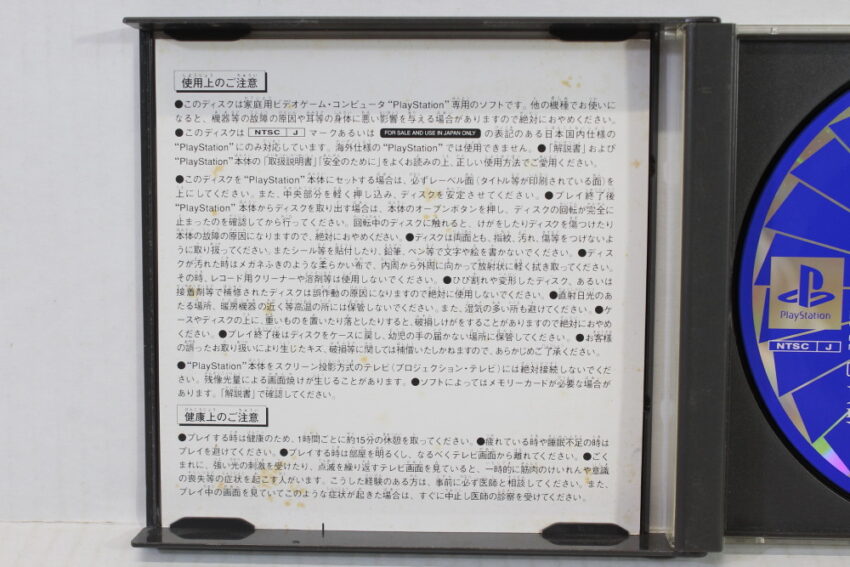 使用上のご注意
●このディスクは家庭用ビデオゲーム・コンピュータ“PlayStation”専用のソフトです。他の機種でお使いに
なると、機器等の故障の原因や耳等の身体に悪い影響を与える場合がありますので絶対におやめください。
●このディスクは NTSC J マークあるいは FOR SALE AND USE IN JAPAN ONLY の表記のある日本国内仕様の
“PlayStation”にのみ対応しています。海外仕様の“PlayStation”では使用できません。●「解説書」および
“PlayStation”本体の「取扱説明書」「安全のために」をよくお読みの上、正しい使用方法でご愛用ください。
●このディスクを“PlayStation”本体にセットする場合は、必ずレーベル面（タイトル等が印刷されている面）を
上にしてください。また、中央部分を軽く押し込み、ディスクを安定させてください。●プレイ終了後
“PlayStation”本体からディスクを取り出す場合は、本体のオープンボタンを押し、ディスクの回転が完全に
止まったのを確認してから行ってください。回転中のディスクに触れると、けがをしたりディスクを傷つけたり
本体の故障の原因になりますので、絶対におやめください。●ディスクは両面とも、指紋、汚れ、傷等をつけないよ
うに取り扱ってください。またシール等を貼付したり、鉛筆、ペン等で文字や絵を書かないでください。●ディス
クが汚れた時はメガネふきのような柔らかい布で、内周から外周に向かって放射状に軽く拭き取ってください。
その時、レコード用クリーナーや溶剤等は使用しないでください。●ひび割れや変形したディスク、あるいは
接着剤等で補修されたディスクは誤作動の原因になりますので絶対に使用しないでください。●直射日光のあ
たる場所、暖房機器の近く等高温の所には保管しないでください。また、湿気の多い所も避けてください。●ケ
ースやディスクの上に、重いものを置いたり落としたりすると、破損しけがをすることがありますので絶対におやめ
ください。●プレイ終了後はディスクをケースに戻し、幼児の手の届かない場所に保管してください。●お客様
の誤ったお取り扱いにより生じたキズ、破損等に関しては補償いたしかねますので、あらかじめご了承ください。
●“PlayStation”本体をスクリーン投影方式のテレビ（プロジェクション・テレビ）には絶対接続しないでくださ
い。残像光量による画面焼けが生じることがあります。●ソフトによってはメモリーカードが必要な場合が
あります。「解説書」で確認してください。
健康上のご注意
●プレイする時は健康のため、1時間ごとに約15分の休憩を取ってください。●疲れている時や睡眠不足の時は
プレイを避けてください。●プレイする時は部屋を明るくし、なるべくテレビ画面から離れてください。●ごく
まれに、強い光の刺激を受けたり、点滅を繰り返すテレビ画面を見ていると、一時的に筋肉のけいれんや意識
の喪失等の症状を起こす人がいます。こうした経験のある方は、事前に必ず医師と相談してください。また、
プレイ中の画面を見ていてこのような症状が起きた場合は、すぐに中止し医師の診察を受けてください。
PlayStation
NTSC J